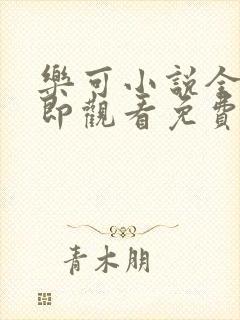 樂可小說全
即觀看免費
青木朋